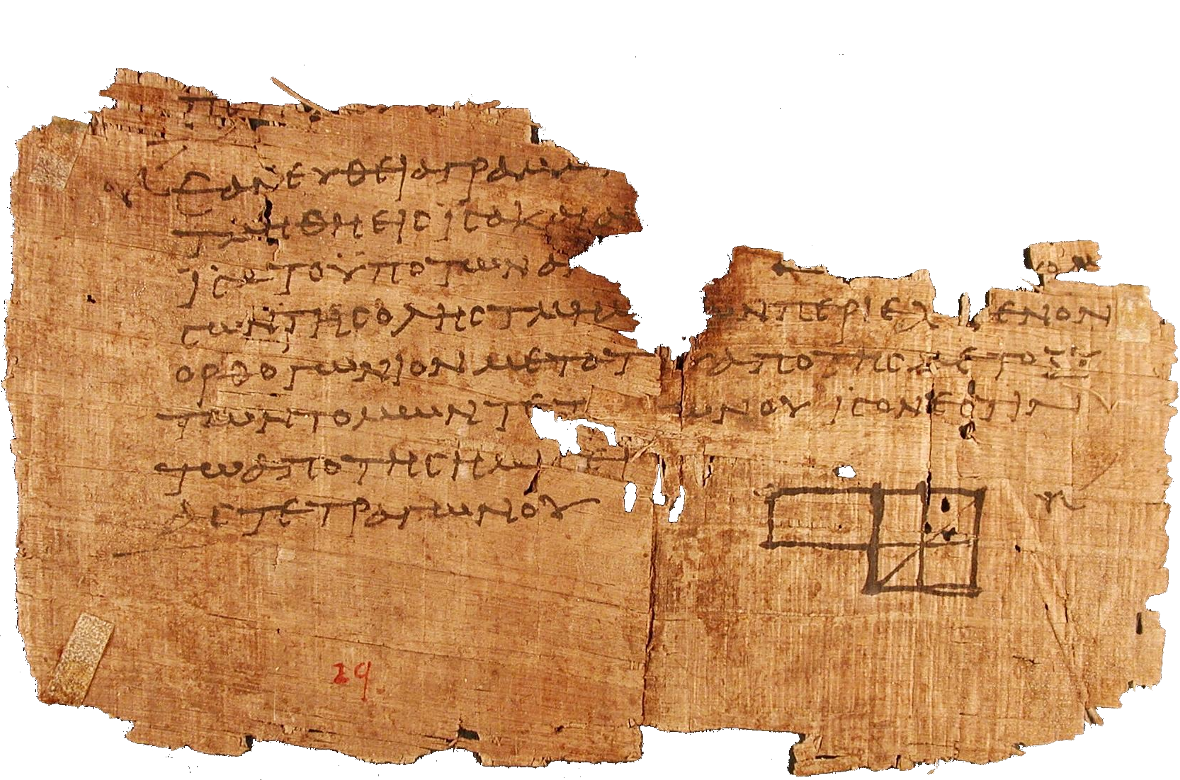 ΕΑΝΕΥΘΕΙΑΓΡΑΜΜ
ΤΜΗΘΗΕΙϹΙϹΑΚΑΙΑ
ΙϹΑΤΟΥΠΟΤΩΝΑ
ϹΩΝΤΗϹΟΛΗϹΤΜΗΜ ΩΝΠΕΡΙΕΧ ΕΝΟΝ
ΟΡΘΟΓΩΝΙΟΝΜΕΤΟΤ ΑΠΟΤΗϹΜΕΤΟΞΥ
ΤΩΝΤΟΜΩΝΤΕΤ ΩΝΟΥΙϹΟΝΕϹΤΙΝ
ΤΩΑΠΟΤΗϹΗΜΙϹ
ΑϹΤΕΤΡΑΓΩΝΟΥ
29